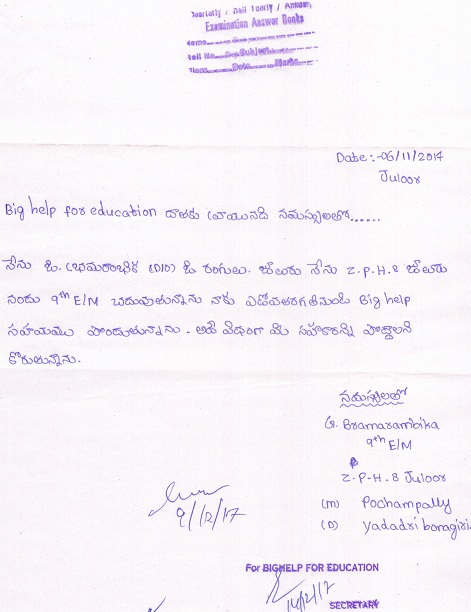 Quarterly / Half Yearly / Annual,
Examination Answer Books
Name
Roll No. Subject
Class Date Marks
Date :- 06/11/2017
Juloor
Big help for education దాతకు వ్రాయునది నమస్సులతో......
నేను జి. భ్రమరాంబిక (D/O) జి రంగులు. జూలురు నేను Z.P.H.S జూలురు
నందు 9th E/M చదువుతున్నాను నాకు ఏడోవతరగతినుండి Big help
సహయము పొందుతున్నాను. అదే విధంగా మీ సహకారాన్ని పొందాలని
కోరుతున్నాను.
నమస్సులతో
G. Bramarambika
9th E/M
Z.P.H.S Juloor
(M) Pochampally
(D) Yadadri bonagiri.
9/12/17
For BIGHELP FOR EDUCATION
14/12/17
SECRETARY